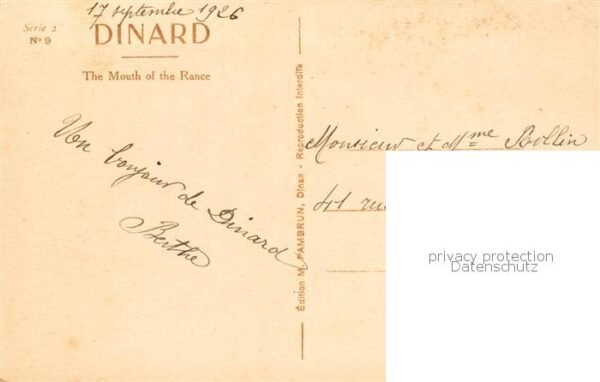 17 septembre 1926
Série 2
Nº 9
DINARD
The Mouth of the Rance
Un bonjour de Dinard
Berthe
Édition M. PAMBRUN, Dinan - Reproduction Interdite
Monsieur et Mme Bollin
41 rue
privacy protection
Datenschutz